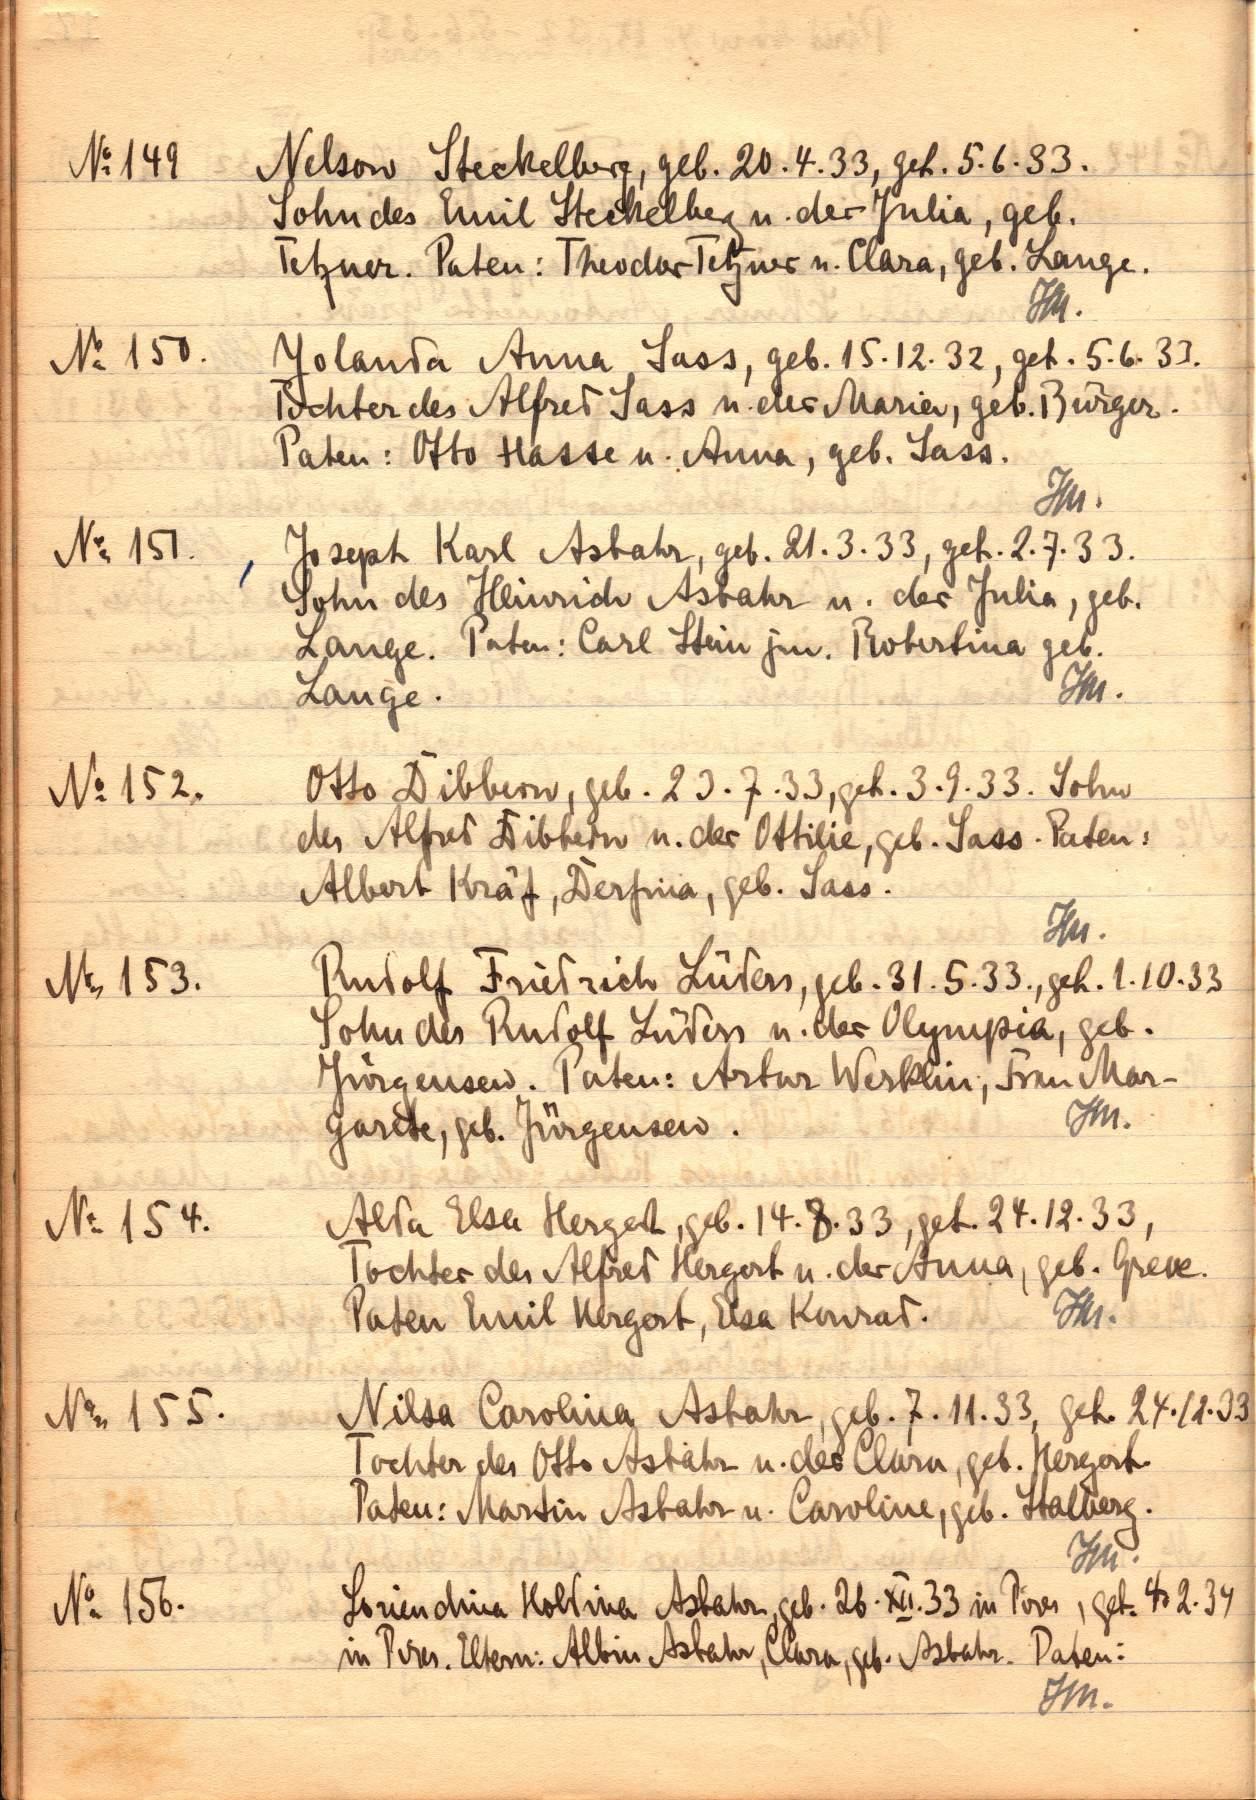 No. 149 Nelson Steckelberg, geb. 20.4.33, get. 5.6.33.
Sohn des Emil Steckelberg u. der Julia, geb.
Tetzner. Paten: Theodor Tetzner u. Clara, geb. Lange.
No. 150. Yolanda Anna Sass, geb. 15.12.32, get. 5.6.33.
Tochter des Alfred Sass u. der Maria, geb. Bürger.
Paten: Otto Hasse u. Anna, geb. Sass.
No. 151. Joseph Karl Asbahr, geb. 21.3.33, get. 2.7.33.
Sohn des Heinrich Asbahr u. der Julia, geb.
Lange. Paten: Carl Stein jun. Robertina geb.
Lange.
No. 152. Otto Dibbern, geb. 23.7.33, get. 3.9.33. Sohn
des Alfred Dibbern u. der Ottilie, geb. Sass. Paten:
Albert Kräf, geb. Sass.
No. 153. Rudolf Friedrich Lüders, geb. 31.5.33., get. 1.10.33
Sohn des Rudolf Lüders u. der Olympia, geb.
Jürgensen. Paten: Artur Werklin, Frau Mar-
garete, geb. Jürgensen.
No. 154. Alda Elsa Hergert, geb. 14.8.33, get. 24.12.33,
Tochter des Alfred Hergert u. der Anna, geb. Greve.
Paten Emil Hergert, Elsa Konrad.
No. 155. Nilsa Carolina Asbahr, geb. 7.11.33, get. 24.12.33
Tochter des Otto Asbahr u. der Clara, geb. Hergert.
Paten: Martin Asbahr u. Caroline, geb. Stalberg.
No. 156. Asbahr, geb. 26.XII.33 in Pires, get. 2.34
in Pires. Eltern: Albin Asbahr, Clara, geb. Asbahr. Paten: